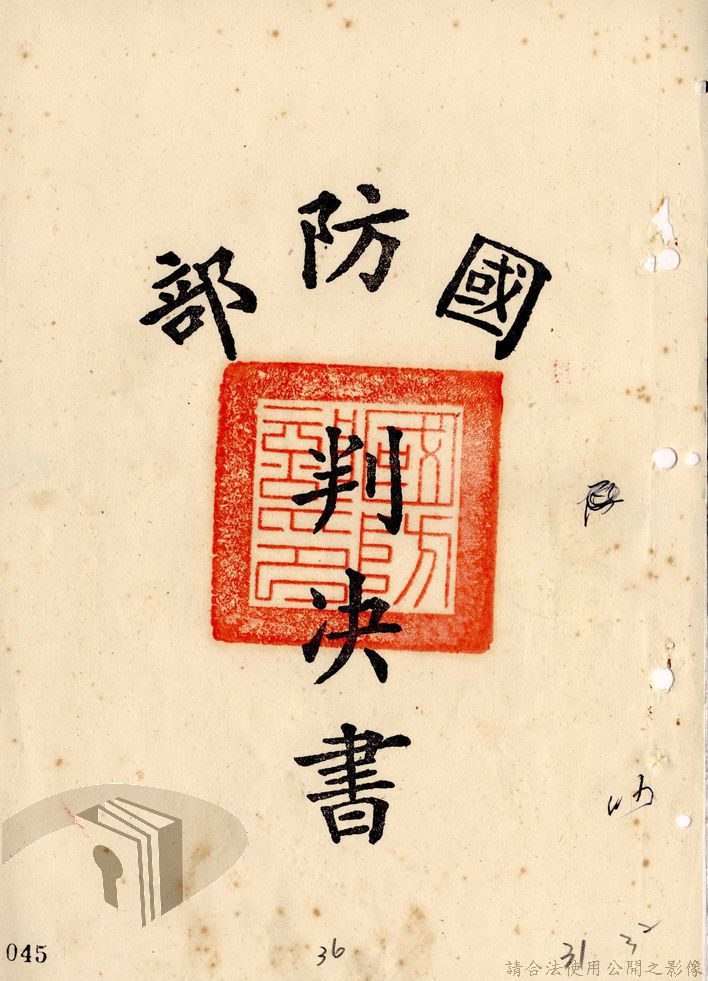 國防部
國防部印
判決書
045
36
31
32
請合法使用公開之影像